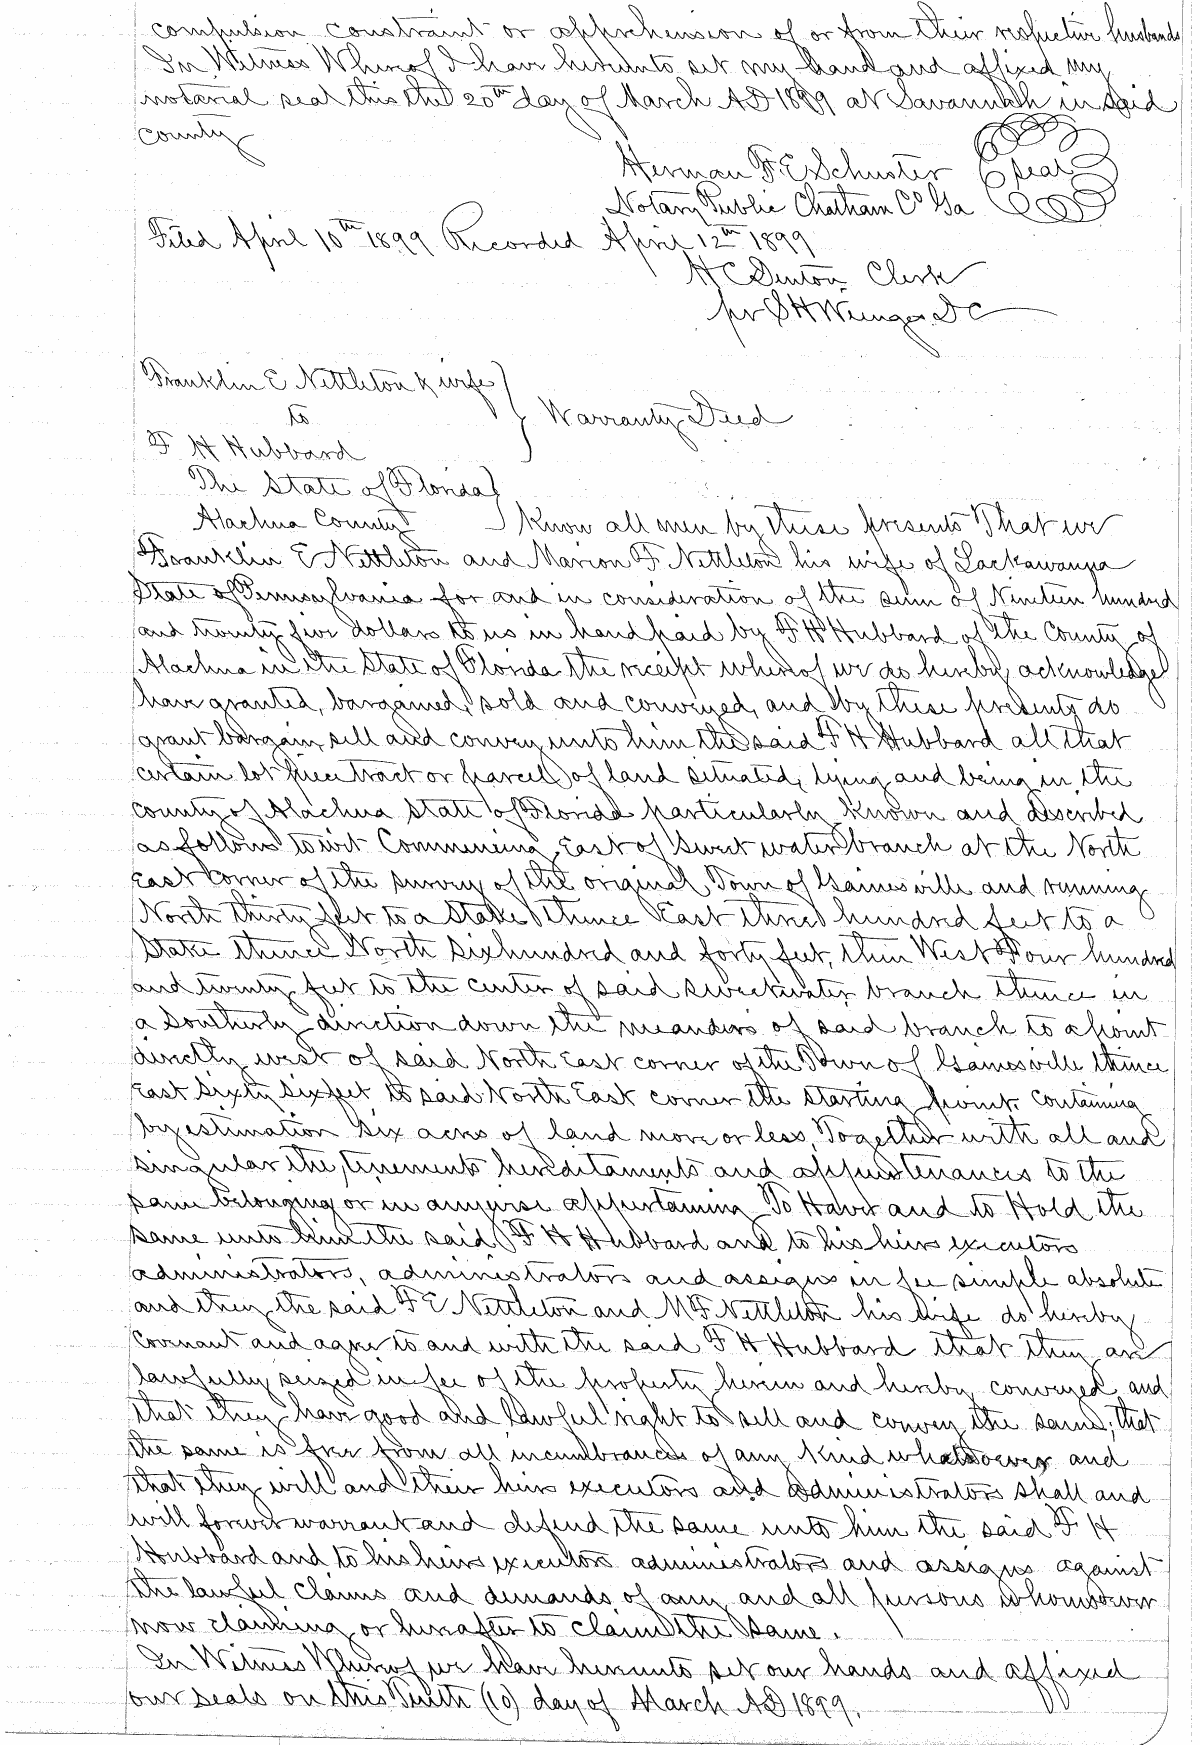 compulsion constraint or apprehension of or from their respective husbands
In Witness Whereof I have hereunto set my hand and affixed my
notarial seal this the 20th day of March AD 1899 at Savannah in said
County
Herman F. E Schuster seal
Notary Public Chatham Co Ga
Filed April 10th 1899 Recorded April 12th 1899
H C Denton Clerk
pr S H Wienges D C
Franklin E Nettleton & wife
to
Warranty Deed
F H Hubbard
The State of Florida
Alachua County Know all men by these presents That we
Franklin E Nettleton and Marion F Nettleton his wife of Lackawanna
State of Pennsylvania for and in consideration of the sum of Nineteen hundred
and twenty five dollars to us in hand paid by F H Hubbard of the County of
Alachua in the State of Florida the receipt whereof we do hereby acknowledge
have granted, bargained, sold and conveyed, and by these presents do
grant bargain, sell and convey unto him the said F H Hubbard all that
certain lot piece tract or parcel of land situated, lying and being in the
County of Alachua State of Florida particularly known and described
as follows to wit Commencing East of Sweet water branch at the North
East Corner of the survey of the original Town of Gainesville and running
North thirty feet to a stake thence East three hundred feet to a
Stake thence North Six hundred and forty feet, then West Four hundred
and twenty feet to the center of said Sweetwater branch thence in
a Southerly direction down the meanders of said branch to a point
directly west of said North East corner of the Town of Gainesville thence
East Sixty Six feet to said North East corner the starting point. Containing
by estimation six acres of land more or less, Together with all and
singular the tenements hereditaments and appurtenances to the
same belonging or in anywise appertaining To Have and to Hold the
same unto him the said F H Hubbard and to his heirs executors
administrators, administrators and assigns in fee simple absolute
and they the said F E Nettleton and M F Nettleton his wife do hereby
Covenant and agree to and with the said F H Hubbard that they are
lawfully seized in fee of the property herein and hereby conveyed and
that they have good and lawful right to sell and convey the same; that
the same is free from all incumbrances of any kind whatsoever and
that they will and their heirs executors and administrators shall and
will forever warrant and defend the same unto him the said F H
Hubbard and to his heirs executors administrators and assigns against
the lawful claims and demands of any and all persons whomsoever
now claiming or hereafter to claim the same.
In Witness Whereof we have hereunto set our hands and affixed
our seals on this Tenth (10) day of March AD 1899.